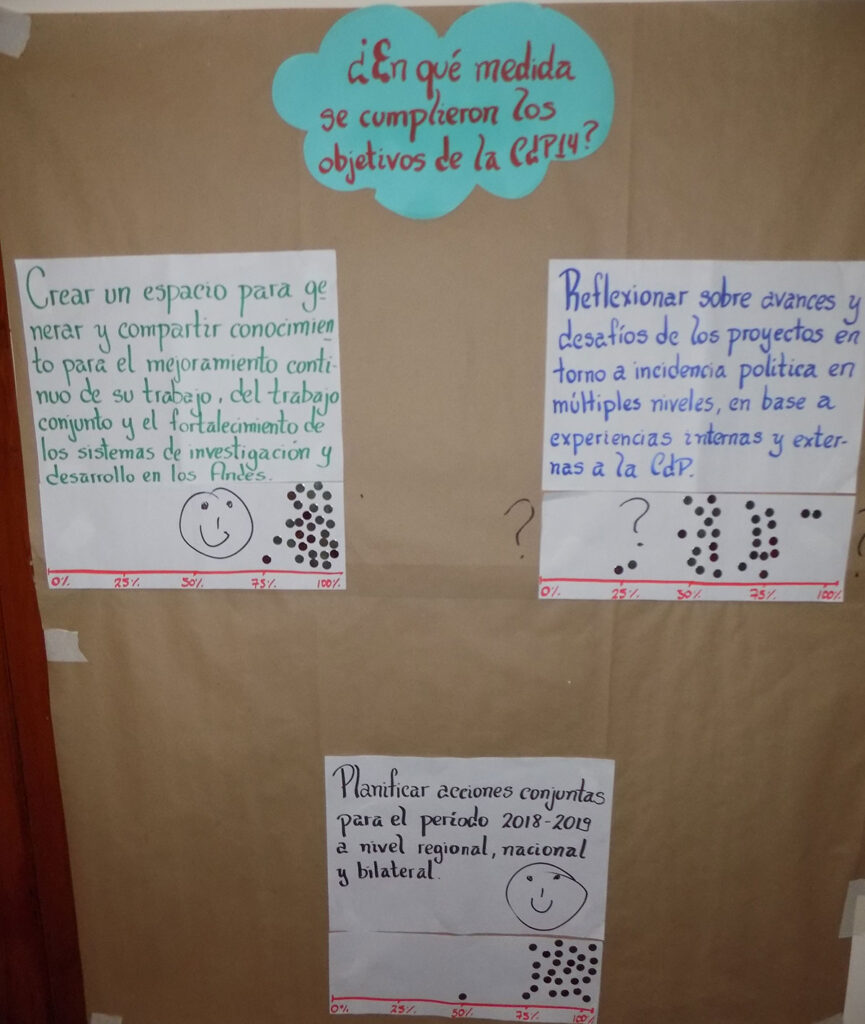 ¿En qué medida
se cumplieron los
objetivos de la CdP14?
Crear un espacio para ge
nerar y compartir conocimien
to para el mejoramiento conti-
nuo de su trabajo, del trabajo
conjunto y el fortalecimiento de
los sistemas de investigación y
desarrollo en los Andes.
0% 25% 50% 75% 100%
Reflexionar sobre avances y
desafíos de los proyectos en
torno a incidencia política en
múltiples niveles, en base a
experiencias internas y exter-
nas a la CdP.
? ?
0% 25% 50% 75% 100%
Planificar acciones conjuntas
para el período 2018-2019
a nivel regional, nacional
y bilateral.
0% 25% 50% 75% 100%